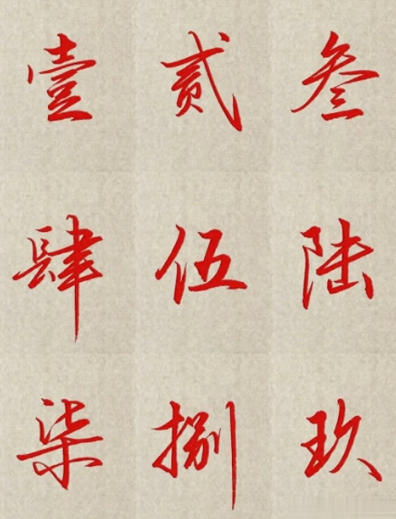 壹贰叁
肆伍陆
柒捌玖